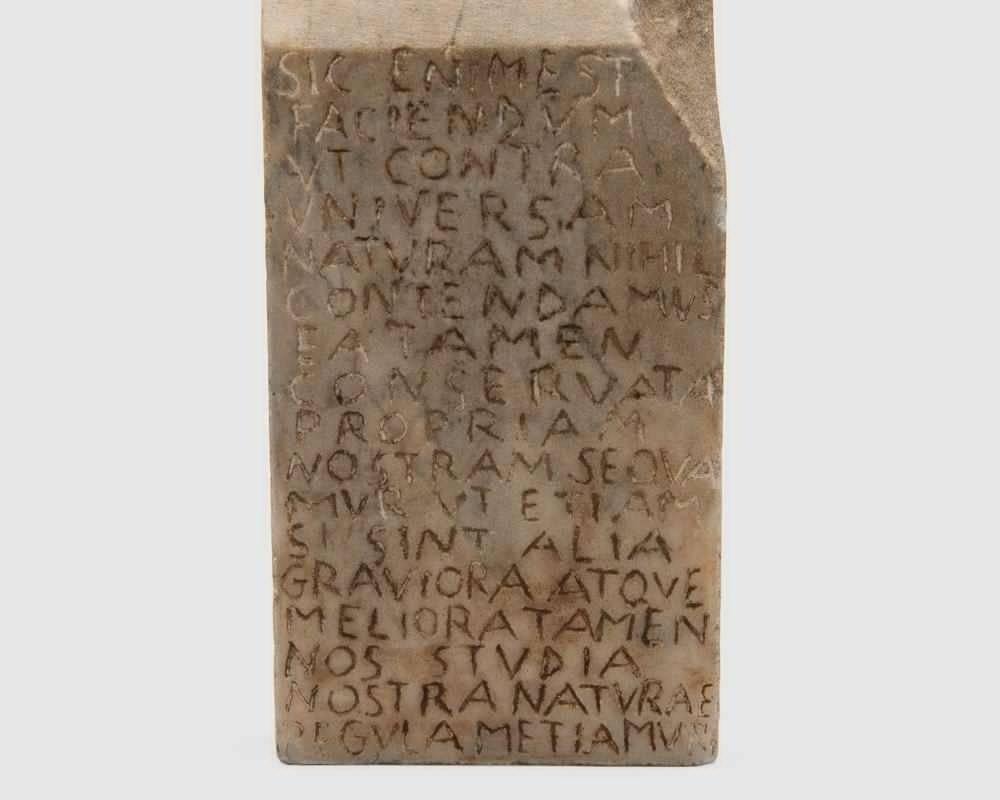 SIC ENIM EST
FACIENDVM
VT CONTRA
VNIVERSAM
NATVRAM NIHIL
CONTENDAMVS
EA TAMEN
CONSERVATA
PROPRIAM
NOSTRAM SEQVA
MVR VT ETIAM
SI SINT ALIA
GRAVIORA ATQVE
MELIORA TAMEN
NOS STVDIA
NOSTRA NATVRAE
REGVLA METIAMVR